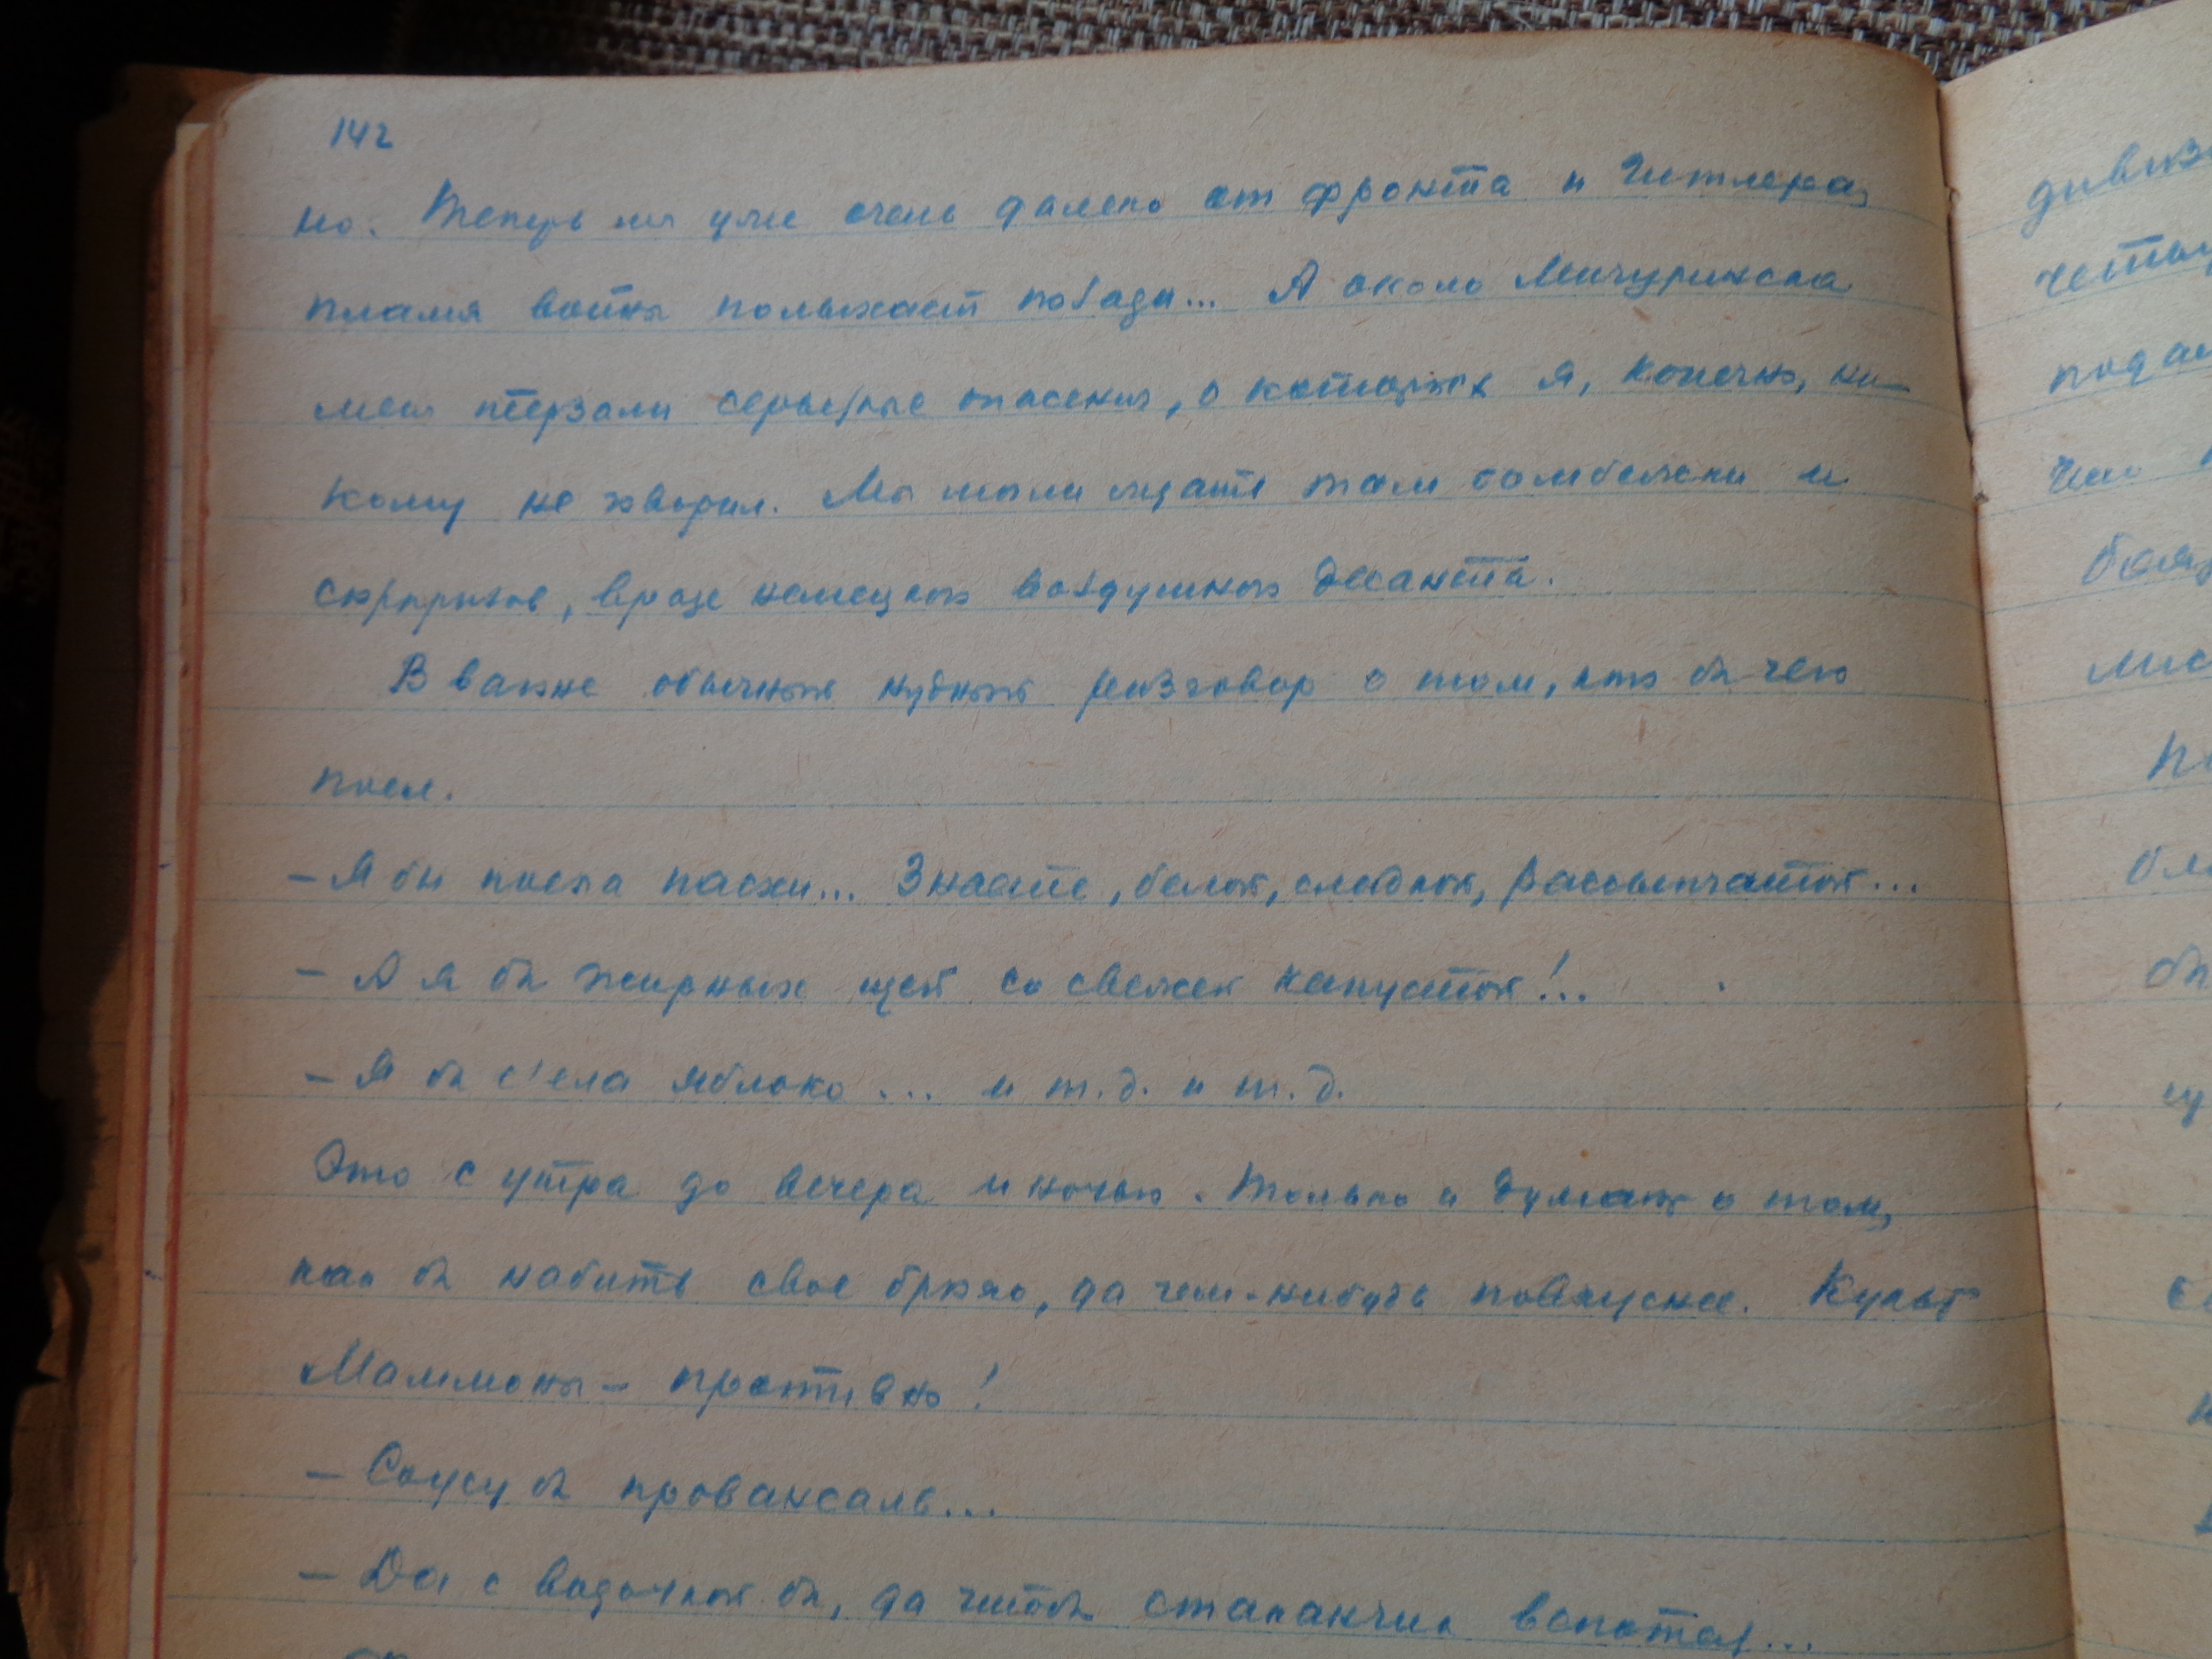 142
но. Теперь мы уже очень далеко от фронта и Гитлера,
пламя войны полыхает позади... А около Мичуринска
меня терзали серьезные опасения, о которых я, конечно, ни-
кому не говорил. Мы могли ждать там бомбежки и
сюрпризов, вроде немецкого воздушного десанта.
В вагоне обычный нудный разговор о том, кто бы чего
поел.
- Я бы поела пасхи... Знаете, белой, сладкой, рассыпчатой...
- А я бы жирных щей со свежей капустой!..
- Я бы с'ела яблоко... и т.д. и т.д.
Это с утра до вечера и ночью. Только и думают о том,
как бы набить свое брюхо, да чем-нибудь повкуснее. Культ
Маммоны - противно!
- Соусу бы провансаль...
- Да с водочкой бы, да чтобы стаканчик запотел...
дивиз
четы
пода
чем
бояз
мис
по
бли
бы